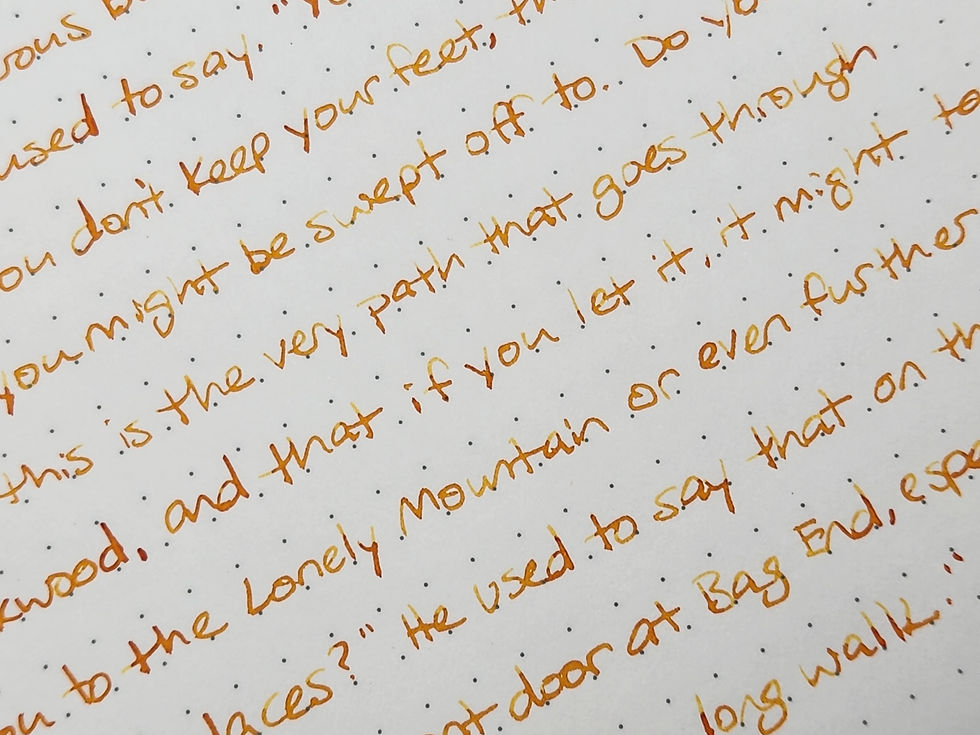 rous b
used to say. "Yo
ou don't keep your feet, th
you might be swept off to. Do yo
this is the very path that goes through
kwood, and that if you let it, it might to
ou to the Lonely Mountain or even further
laces?" He used to say that on th
nt door at Bag End, espe
long walk."